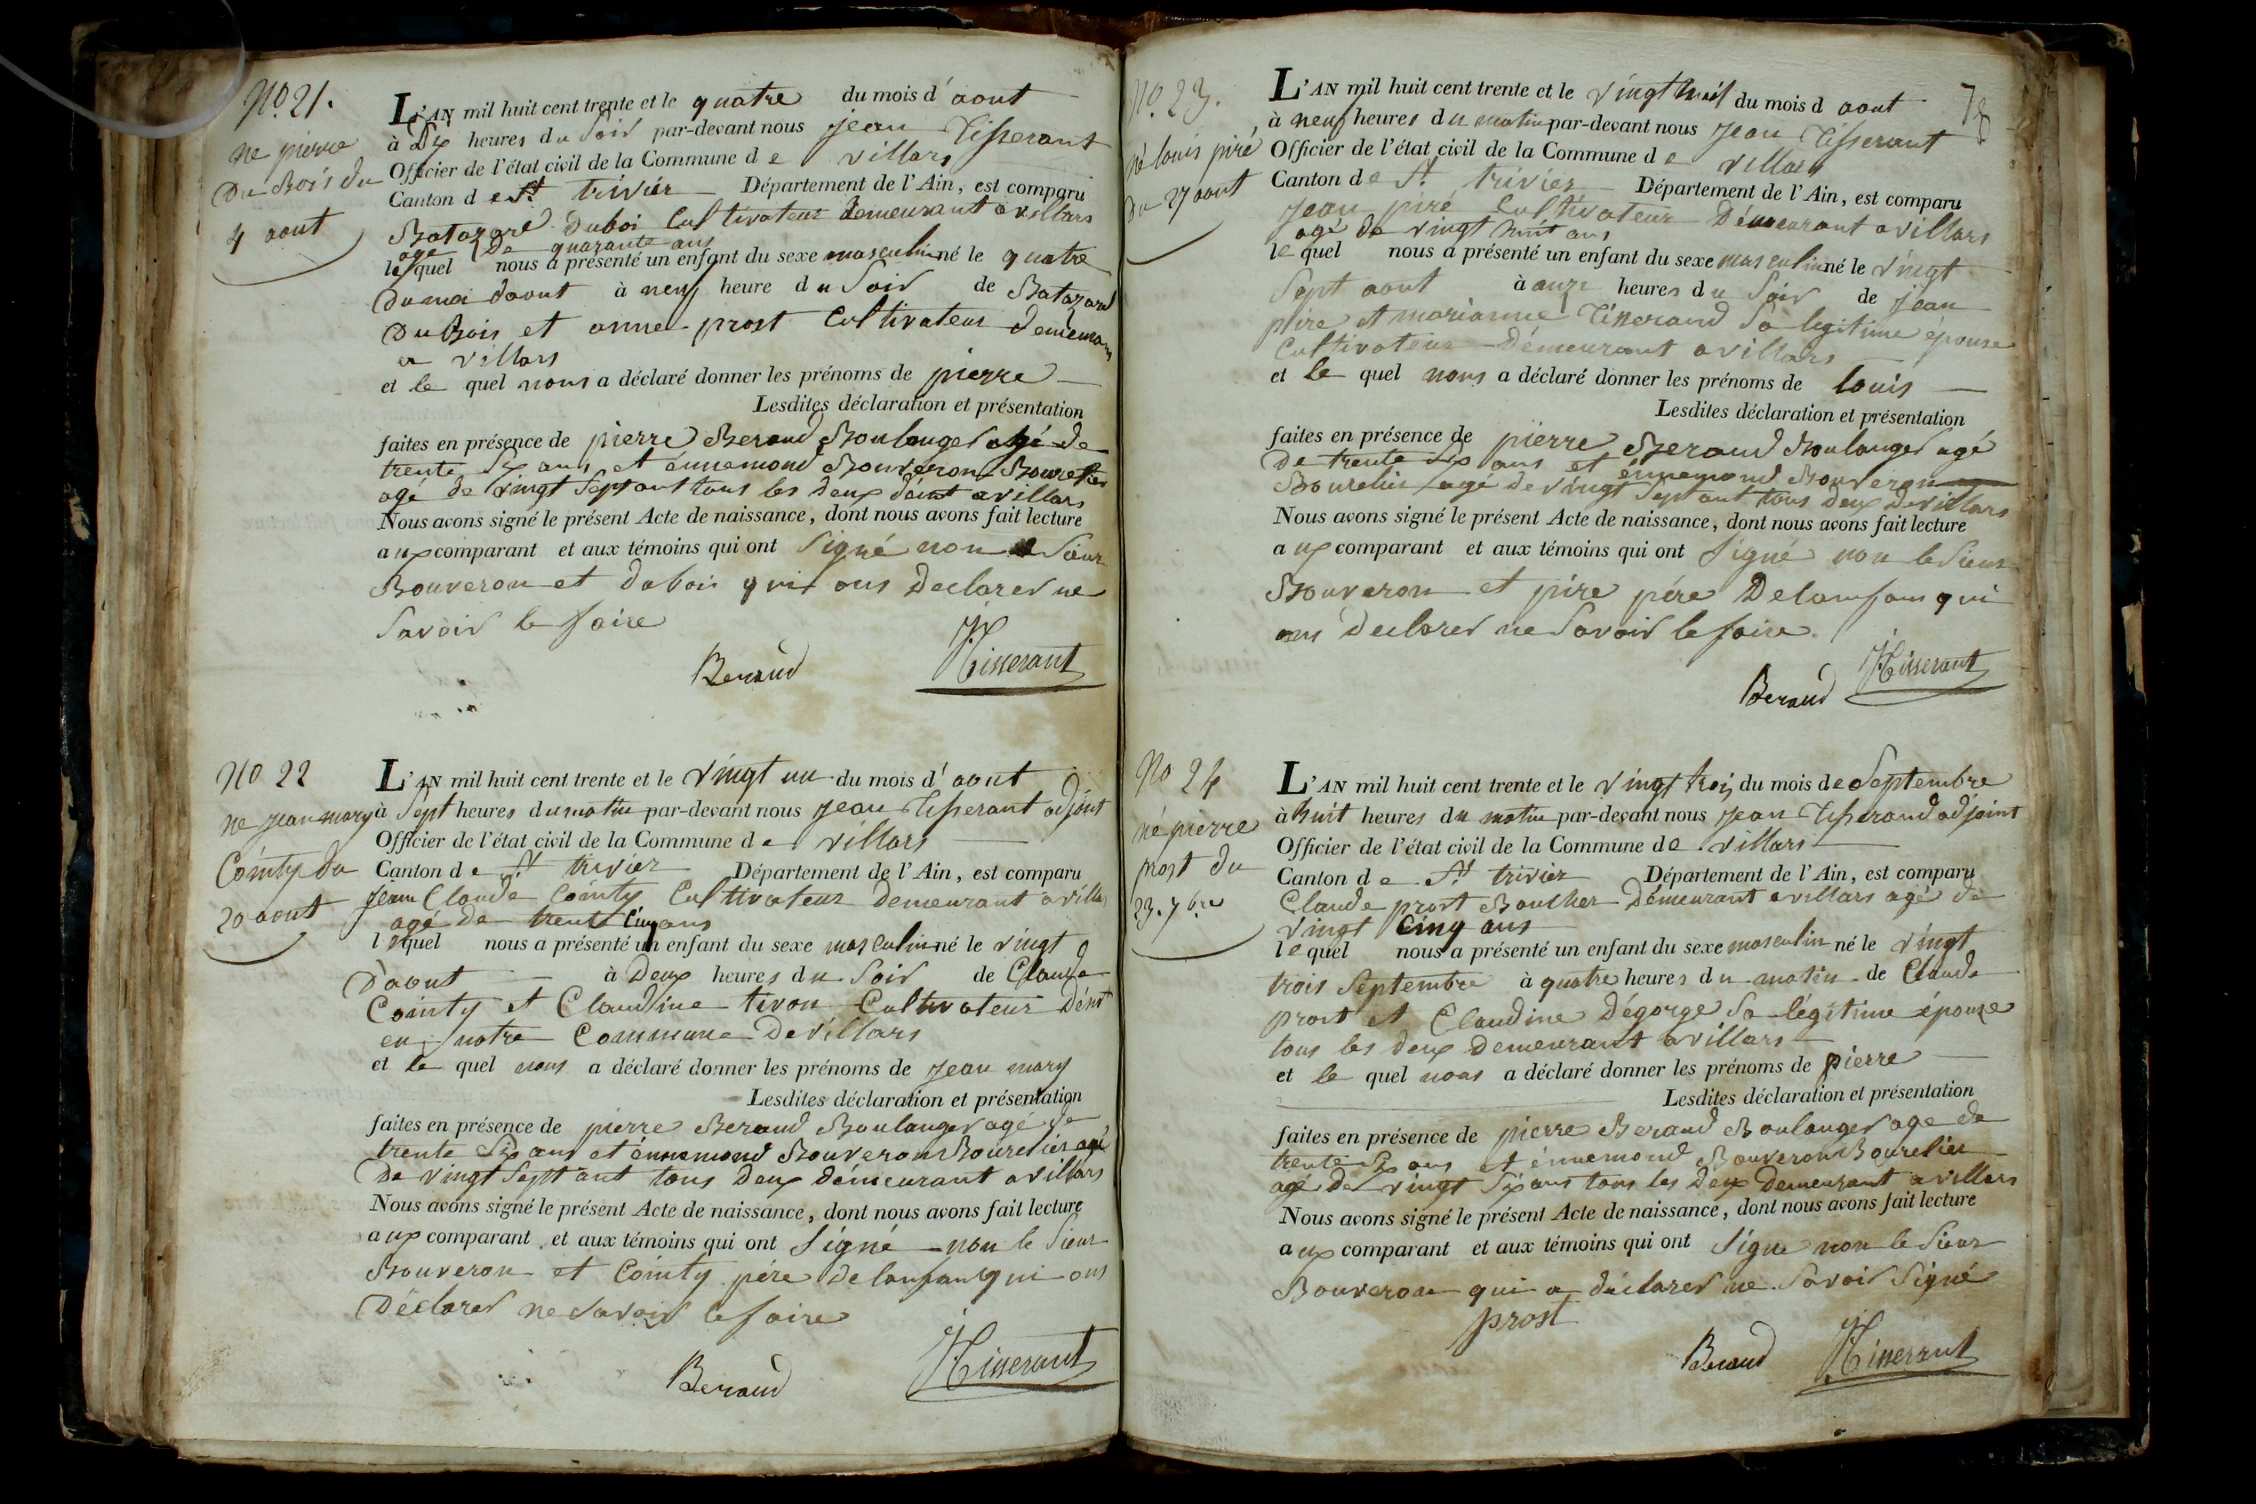 No. 21.
ne pierre
Du Bois du
4 aout
L'AN mil huit cent trente et le quatre du mois d'aout
à Dix heures du Soir par-devant nous Jean Tisserant
Officier de l'état civil de la Commune de villars
Canton de St. trivier Département de l'Ain, est comparu
Batazard Duboi Cultivateur demeurant a villars
agé De quarante ans
lequel nous a présenté un enfant du sexe masculin né le quatre
Du moi daout à neuf heure du Soir de Batazard
DuBois et anne prost Cultivateur demeurans
a villars
et le quel nous a déclaré donner les prénoms de pierre
Lesdites déclaration et présentation
faites en présence de pierre Beraud Boulanger agé de
trente Six ans et énnemond Bouveron Bourelier
agé de vingt Sept ant tous les deux démt a villars
Nous avons signé le présent Acte de naissance, dont nous avons fait lecture
aux comparant et aux témoins qui ont Signé non le Sieur
Bouveron et dubois qui ons Declarer ne
Savoir le faire
Beraud JTisserant
No 22
ne Jean mary
Cointy du
20 aout
L'AN mil huit cent trente et le vingt un du mois d'aout
à Sept heures du matin par-devant nous Jean Tisserant adjoint
Officier de l'état civil de la Commune de villars
Canton de St trivier Département de l'Ain, est comparu
Jean Claude Cointy Cultivateur demeurant a villa
agé de trente Cinq ans
lequel nous a présenté un enfant du sexe masculin né le vingt
D'aout à Deux heures du Soir de Claude
Cointy et Claudine tivon Cultivateur Démt
en notre Commune De villars
et le quel nous a déclaré donner les prénoms de Jean mary
Lesdites déclaration et présentation
faites en présence de pierre Beraud Boulanger agé de
trente Six ans et énnemond Bouveron Bourelier agé
De vingt Sept ant tous Deux démeurant a villars
Nous avons signé le présent Acte de naissance, dont nous avons fait lecture
aux comparant et aux témoins qui ont Signé non le Sieur
Bouveron et Cointy pére de lanfant qui ons
Déclarer ne Savoir le faire
Beraud JTisserant
78
No. 23.
né louis piré
Du 27 aout
L'AN mil huit cent trente et le vingt huit du mois d aout
à neuf heures du matin par-devant nous Jean Tisserant
Officier de l'état civil de la Commune de villars
Canton de St. trivier Département de l'Ain, est comparu
Jean piré Cultivateur Démeurant a villars
agé de vingt huit ans
lequel nous a présenté un enfant du sexe masculin né le vingt
Sept aout à onze heures du Soir de jean
pire et marianne Tisserand Sa legitime épouse
Cultivateur Démeurant a villars
et le quel nous a déclaré donner les prénoms de louis
Lesdites déclaration et présentation
faites en présence de pierre Beraud Boulanger agé
De trente six ans et énnemond Bouveron
Bourelier agé de vingt Sept ant tous Deux De villars
Nous avons signé le présent Acte de naissance, dont nous avons fait lecture
aux comparant et aux témoins qui ont Signé non le Sieur
Bouveron et pire pére De lanfans qui
ons Declarer ne Savoir le faire.
Beraud JTisserant
No 24
né pierre
prost du
23. 7bre
L'AN mil huit cent trente et le vingt trois du mois de Septembre
à huit heures du matin par-devant nous Jean Tisserand adjoint
Officier de l'état civil de la Commune de villars
Canton de St trivier Département de l'Ain, est comparu
Claude prost Boucher Démeurant a villars agé de
vingt Cinq ans
lequel nous a présenté un enfant du sexe masculin né le vingt
trois Septembre à quatre heures du matin de Claude
prost et Claudine Dégorge Sa légitime épouze
tous les deux demeurant a villars
et le quel nous a déclaré donner les prénoms de pierre
Lesdites déclaration et présentation
faites en présence de pierre Beraud Boulanger age de
trente Six ans et énnemond Bouveron Bourelier
agé de vingt Six ans tous les Deux demeurant a villars
Nous avons signé le présent Acte de naissance, dont nous avons fait lecture
aux comparant et aux témoins qui ont Signe non le Sieur
Bouveron qui a déclarer ne Savoir Signé
prost
Beraud JTisserant